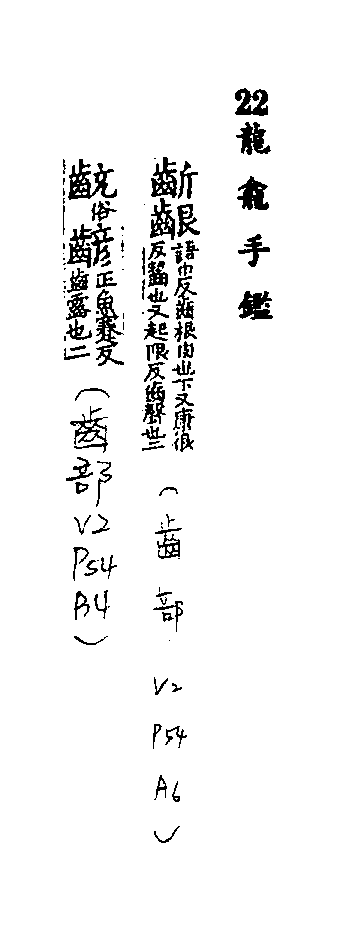 22龍龕手鑑
齗齦語巾反齒根肉也下又康很反齧也又起限反齒聲也二(齒部 V2 P54 A6)
俗齴正魚蹇反齒露也二(齒部 V2 P54 B4)